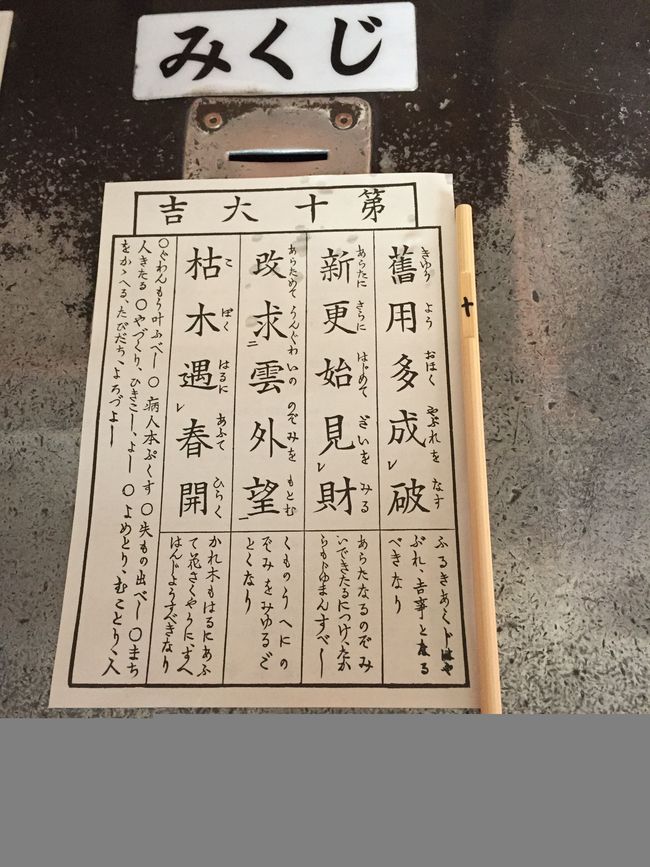 みくじ
第十大吉
十
舊用多成レ破
きゆり よう おほく やぶれを なす
ふるきあく、じはや
ぶれ、吉事となる
べきなり
新更始見レ財
あらたに さらに はじめて ざいを みる
あらたなるのぞみ
いできたるにつけ、たか
すべし
改求二雲外望一
あらためて うんぐわいの のぞみを もとむ
くものうへにの
ぞみをみゆるご
とくなり
枯木遇レ春開
こ ぼく はるに あふて ひらく
かれ木もはるにあふ
て花さくやうに
はんじようすべきなり
〇ぐわんもう叶ふべし 〇病人本ぷくす 〇失もの出べし 〇まち
人きたる 〇やづくり、ひきこし、よし 〇よめとり、むことり、人
をかゝへる、たびだち、よろづよし